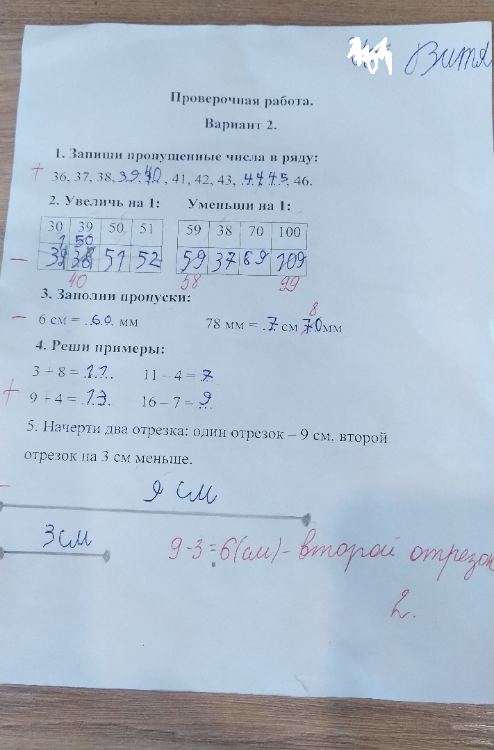 Витя
Проверочная работа.
Вариант 2.
1. Запиши пропущенные числа в ряду:
+ 36, 37, 38, 39, 40, 41, 42, 43, 44 45, 46.
2. Увеличь на 1: Уменьши на 1:
30 39 50 51 59 38 70 100
50
51 52 59 37 69 109
40 58 99
3. Заполни пропуски:
8
- 6 см = 60 мм 78 мм = 7 см 70 мм
4. Реши примеры:
3 + 8 = 11 11 – 4 = 7
+ 9 + 4 = 13 16 – 7 = 9
5. Начерти два отрезка: один отрезок – 9 см, второй
отрезок на 3 см меньше.
9 см
3 см
9-3=6(см)- второй отрезок
2.